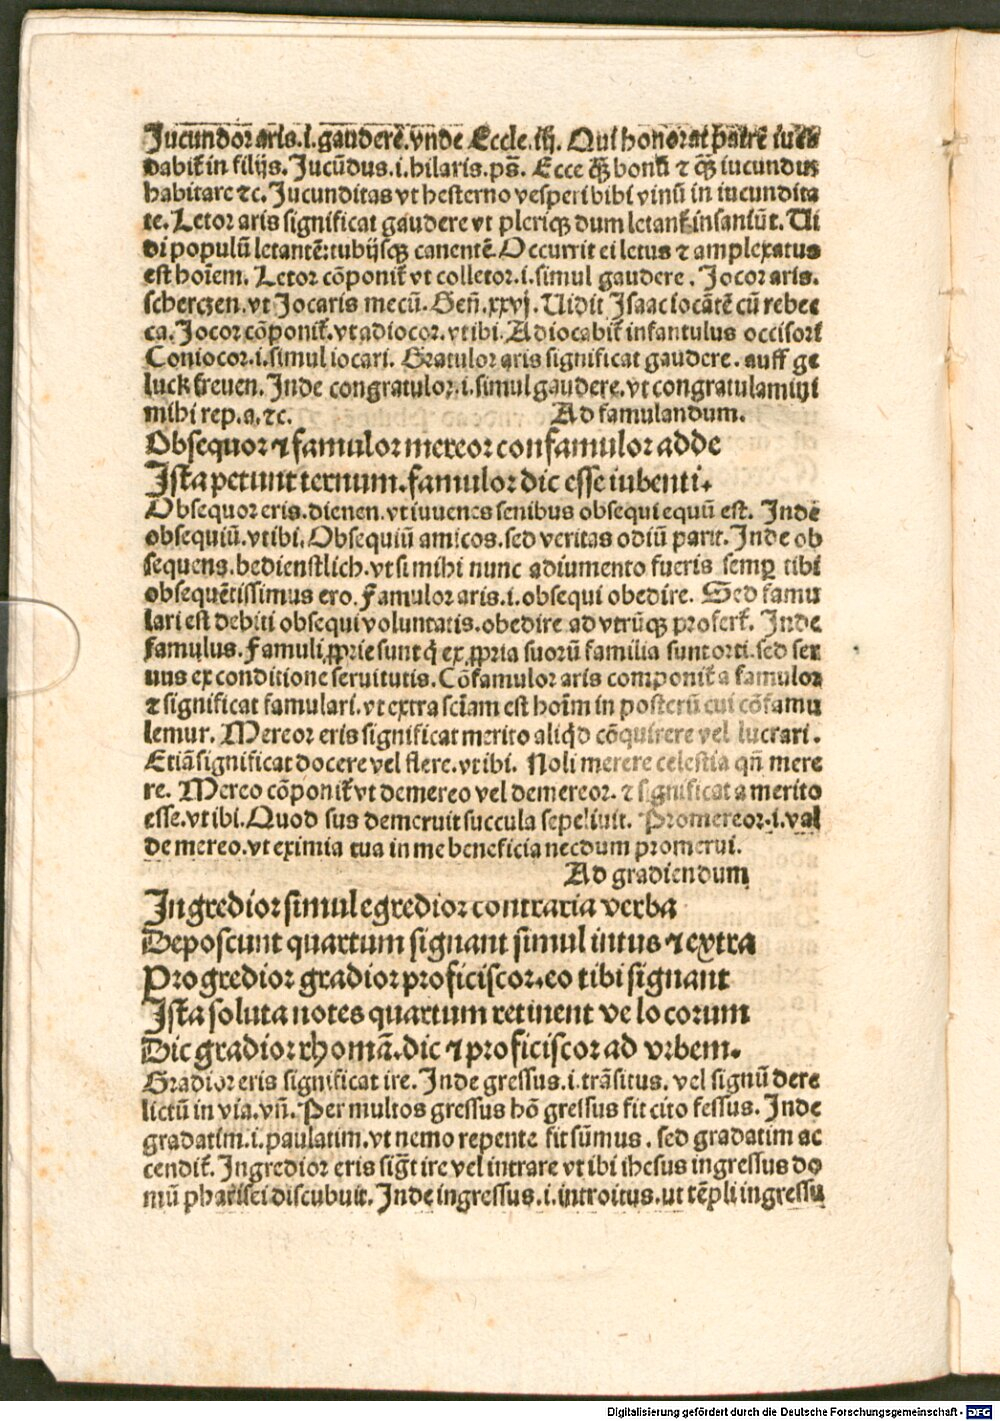 Jucundor aris.i.gauderē.vnde Eccle.iij. Qui honorat patrē iucū
dabit᷑ in filijs. Jucūdus.i.hilaris.ps̄. Ecce q̄ꝫ bonū ⁊ q̄ꝫ iucundū
habitare ⁊c. Jucunditas vt hesterno vesperi bibi vinū in iucundita
te. Letor aris significat gaudere vt pleriqꝫ dum letant᷑ insaniūt. Ui
di populū letantē: tubijsqꝫ canentē. Occurrit ei letus ⁊ amplexatus
est hoīem. Letor cōponit᷑ vt colletor.i.simul gaudere. Jocor aris.
scherczen. vt Jocaris mecū. Geñ.xxvj. Uidit Isaac iocātē cū rebec
ca. Jocor cōponit᷑. vt adiocor. vt ibi. Adiocabit᷑ infantulus occisori᷑
Coniocor.i.simul iocari. Gratulor aris significat gaudere. auff ge
luck freuen. Inde congratulor.i.simul gaudere. vt congratulamini
mihi rep.a.⁊c. Ad famulandum.
Obsequor ⁊ famulor mereor confamulor adde
Ista petunt ternum. famulor dic esse iubenti.
Obsequor eris. dienen. vt iuuenes senibus obsequi equū est. Inde
obsequiū. vt ibi. Obsequiū amicos. sed veritas odiū parit. Inde ob
sequens. bedienstlich. vt si mihi nunc adiumento fueris semꝑ tibi
obsequētissimus ero. Famulor aris.i.obsequi obedire. Sed famu
lari est debiti obsequi voluntatis. obedire ad vtrūqꝫ profert᷑. Inde
famulus. Famuli ꝓprie sunt q̇ ex ꝓpria suorū familia sunt orti. sed ser
uus ex conditione seruitutis. Cōfamulor aris componit᷑ a famulor
⁊ significat famulari. vt extra sciam est hoīm in posterū cui cōfamu
lemur. Mereor eris significat merito aliq̇d cōquirere vel lucrari.
Etiā significat docere vel flere. vt ibi. Noli merere celestia qñ mere
re. Mereo cōponit᷑ vt demereo vel demereor. ⁊ significat a merito
esse. vt ibi. Quod sus demeruit succula sepeliuit. Promereor.i.val
de mereo. vt eximia tua in me beneficia necdum promerui.
Ad gradiendum
Ingredior simul egredior contraria verba
Deposcunt quartum signant simul intus ⁊ extra
Progredior gradior proficiscor. eo tibi signant
Ista soluta notes quartum retinent ve locorum
Dic gradior rhomā. dic ⁊ proficiscor ad vrbem.
Gradior eris significat ire. Inde gressus.i.trāsitus. vel signū dere
lictū in via. vñ. Per multos gressus hō gressus fit cito fessus. Inde
gradatim.i.paulatim. vt nemo repente fit sūmus. sed gradatim ac
cendit᷑. Ingredior eris sigt̄ ire vel intrare vt ibi ihesus ingressus do
mū pharisei discubuit. Inde ingressus.i.introitus. ut tēpli ingressu
Digitalisierung gefördert durch die Deutsche Forschungsgemeinschaft - DFG